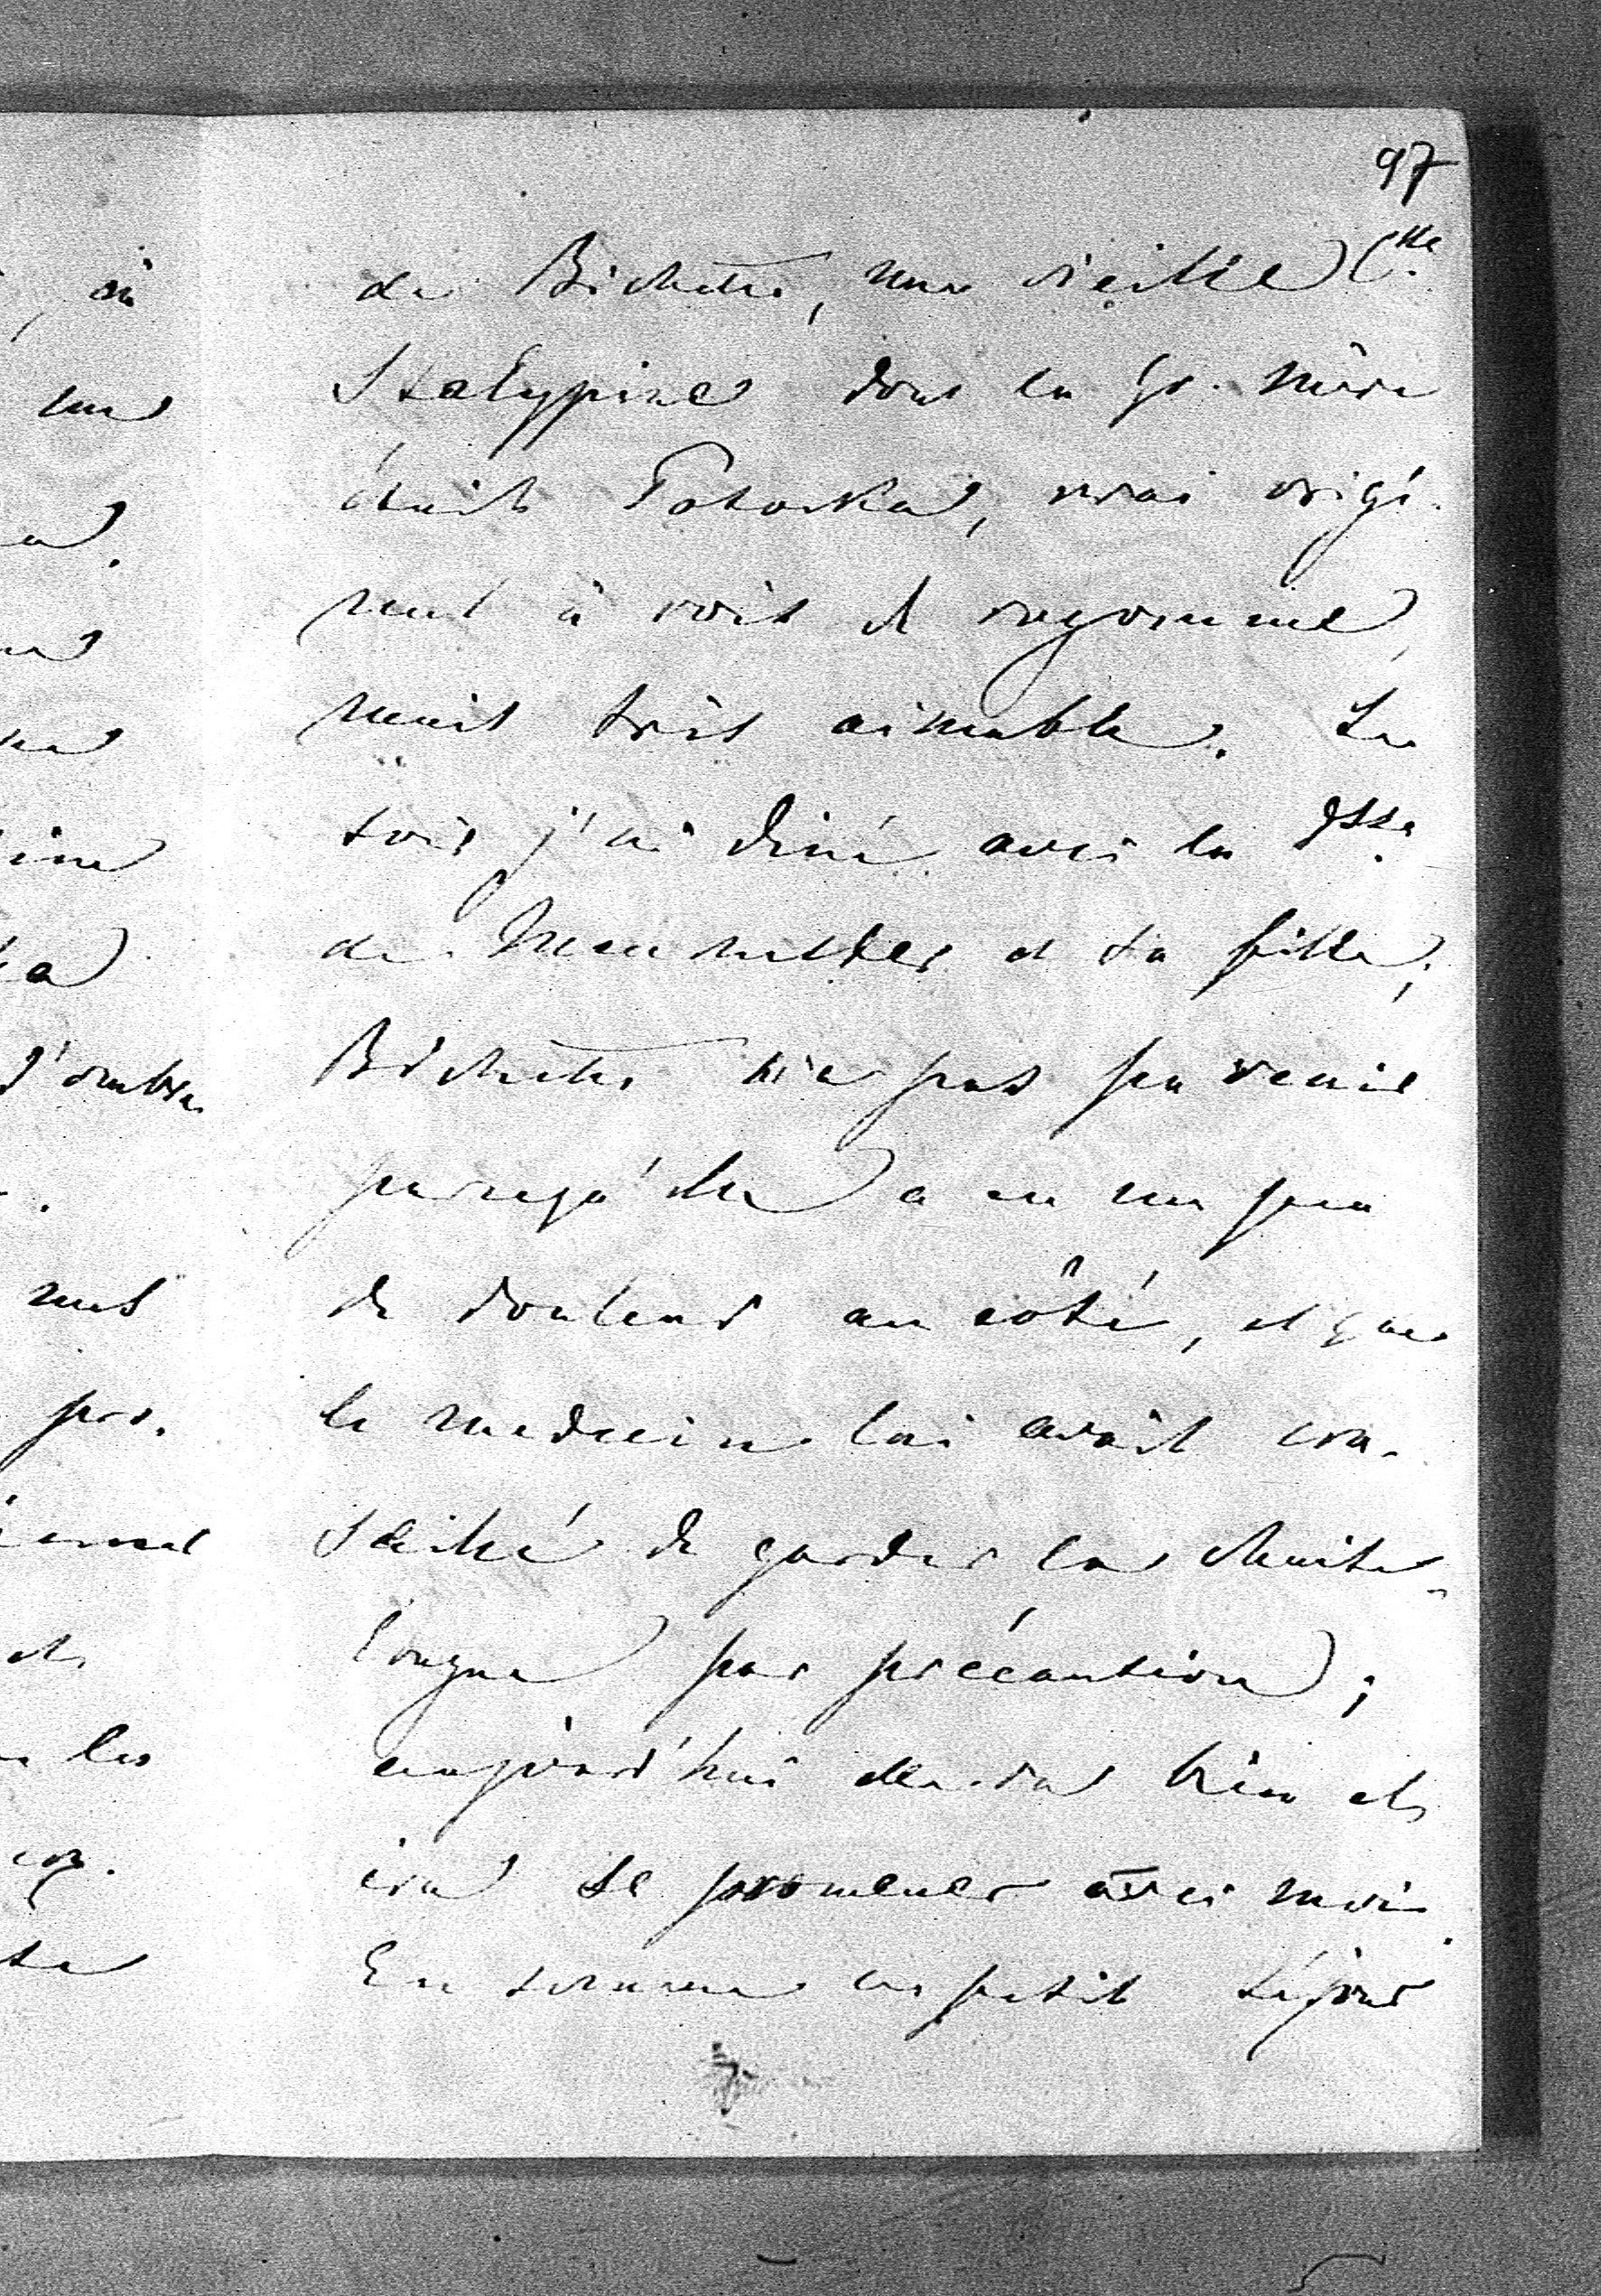 97
de Bichette, une vieille Ctte
Stalypine dont la gr. mère
était Potocka, vrai origi-
nal à voix de rogomme,
mais très aimable. Le
soir j'ai diné avec la Dsse
de Manchester et sa fille;
Bichette n'a pas pu venir
parcequ'elle a eu un peu
de douleur au côté, et que
le medecin lui avait con-
seillé de garder la chaise-
longue par précaution;
aujourd'hui elle va bien et
ira se promener avec moi.
En somme ce petit séjour
d'ombre